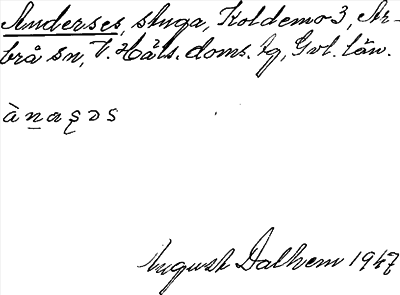 Anderses, stuga, Koldemo 3, Ar-
brå sn, V. Häls. doms. tg, Gvl. län.
àn̲aʂəs
August Dalhem 1947